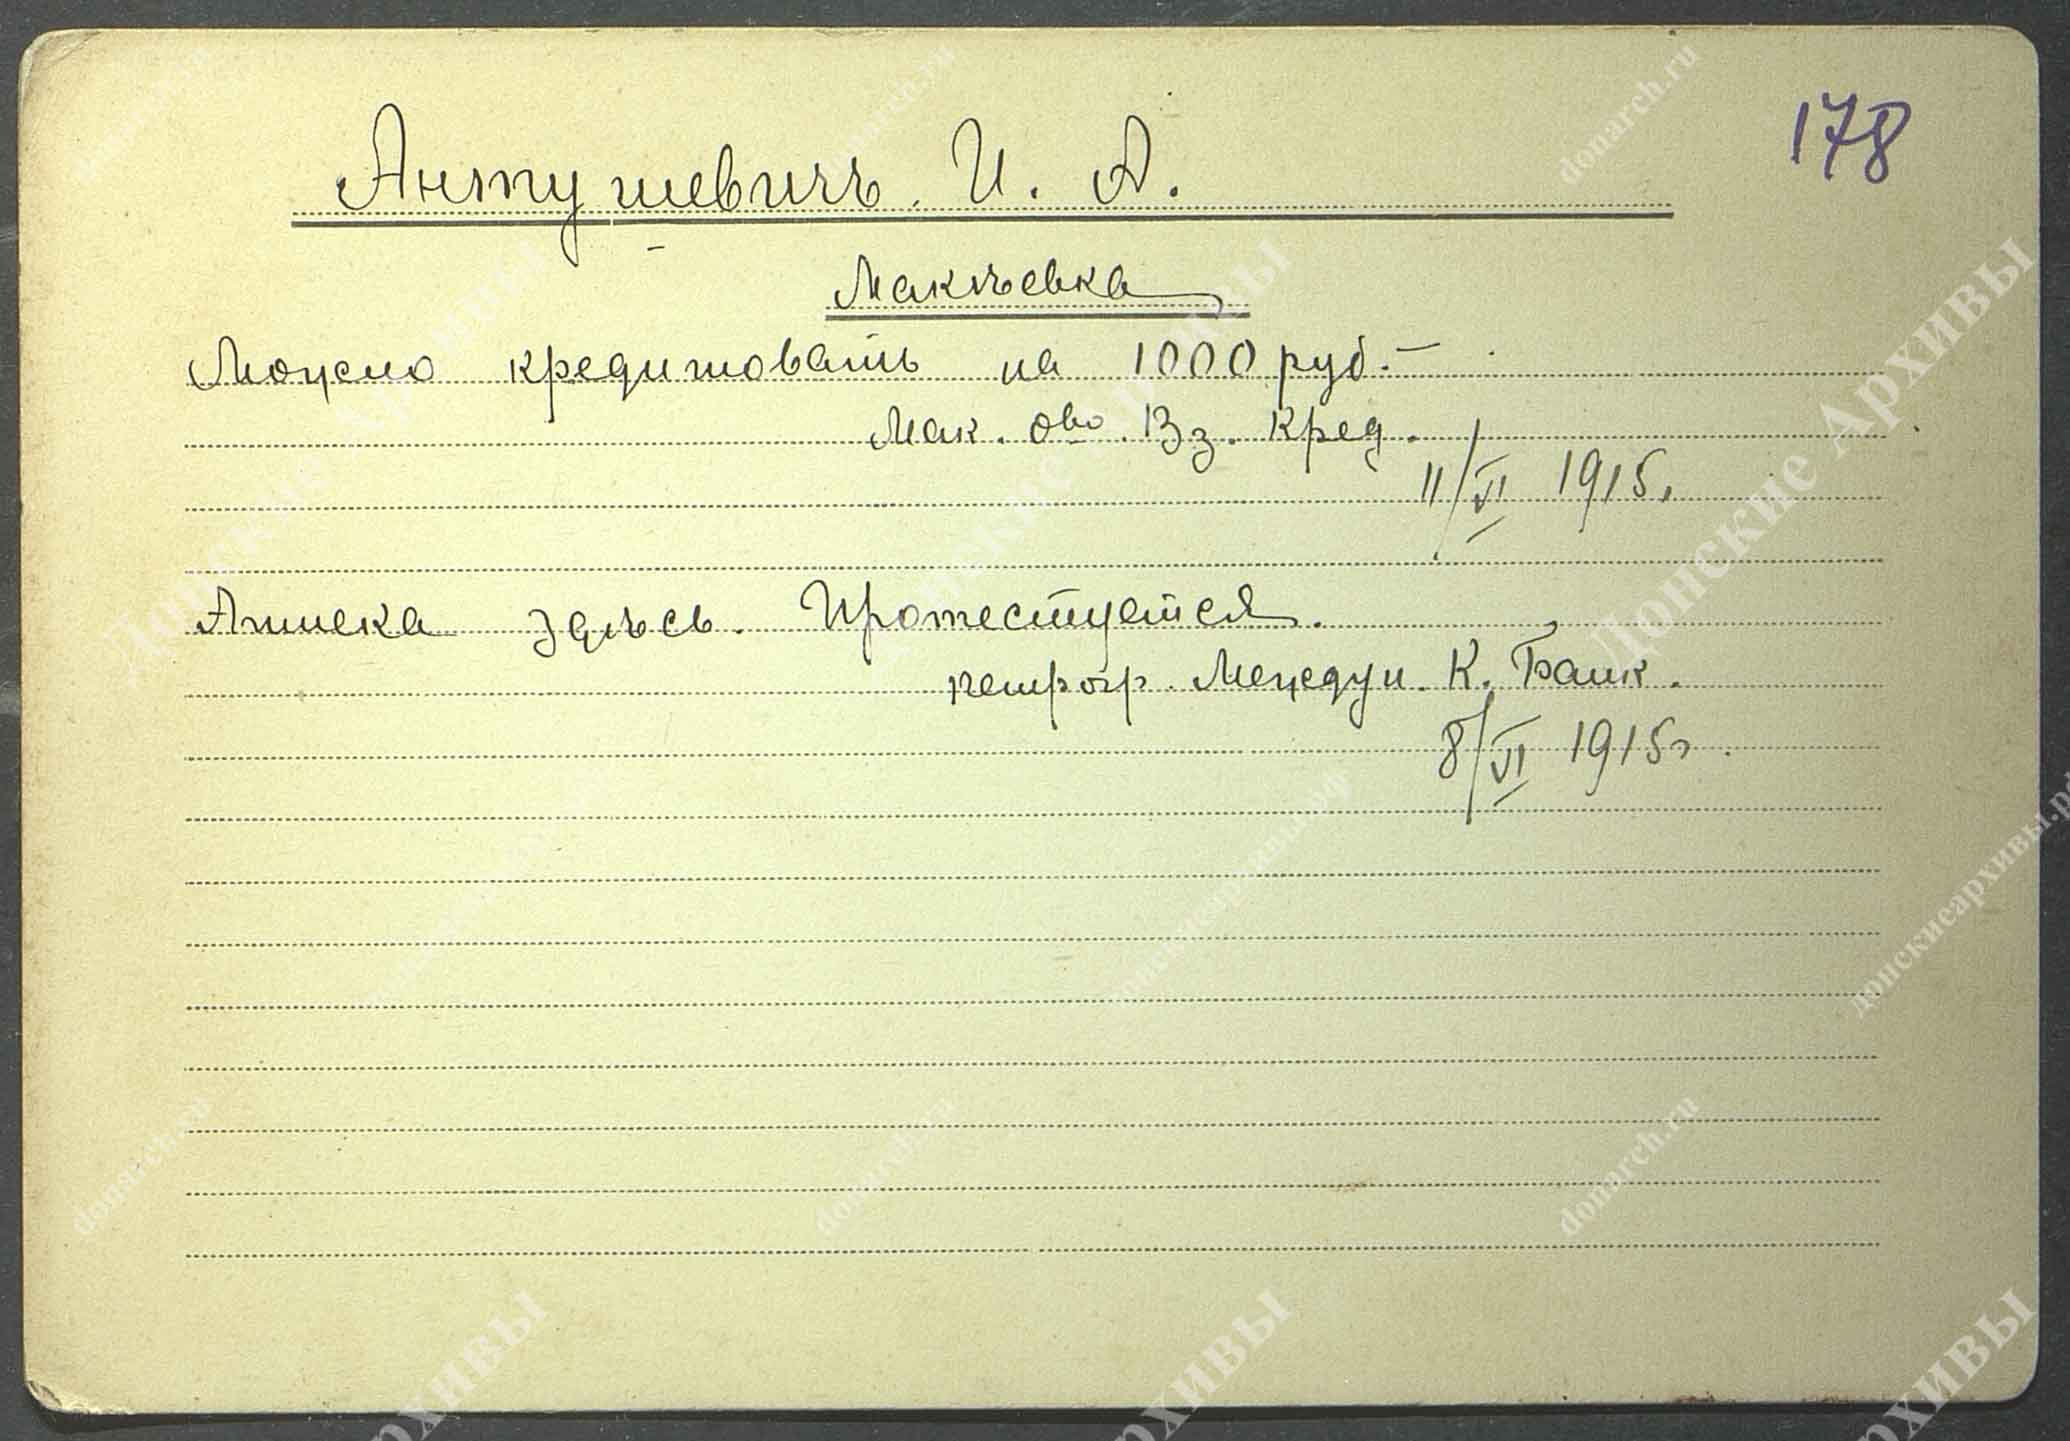 178
Антушевичъ. И. А.
Макѣевка
Можно кредитовать на 1000 руб. —
Мак. о-во Вз. Кред.
11/VI 1915г.
Аптека здѣсь. Протестуется.
петрогр. Междун. К. Банк.
8/VI 1915г.
donarch.ru
Донские Архивы
донскиеархивы.рф